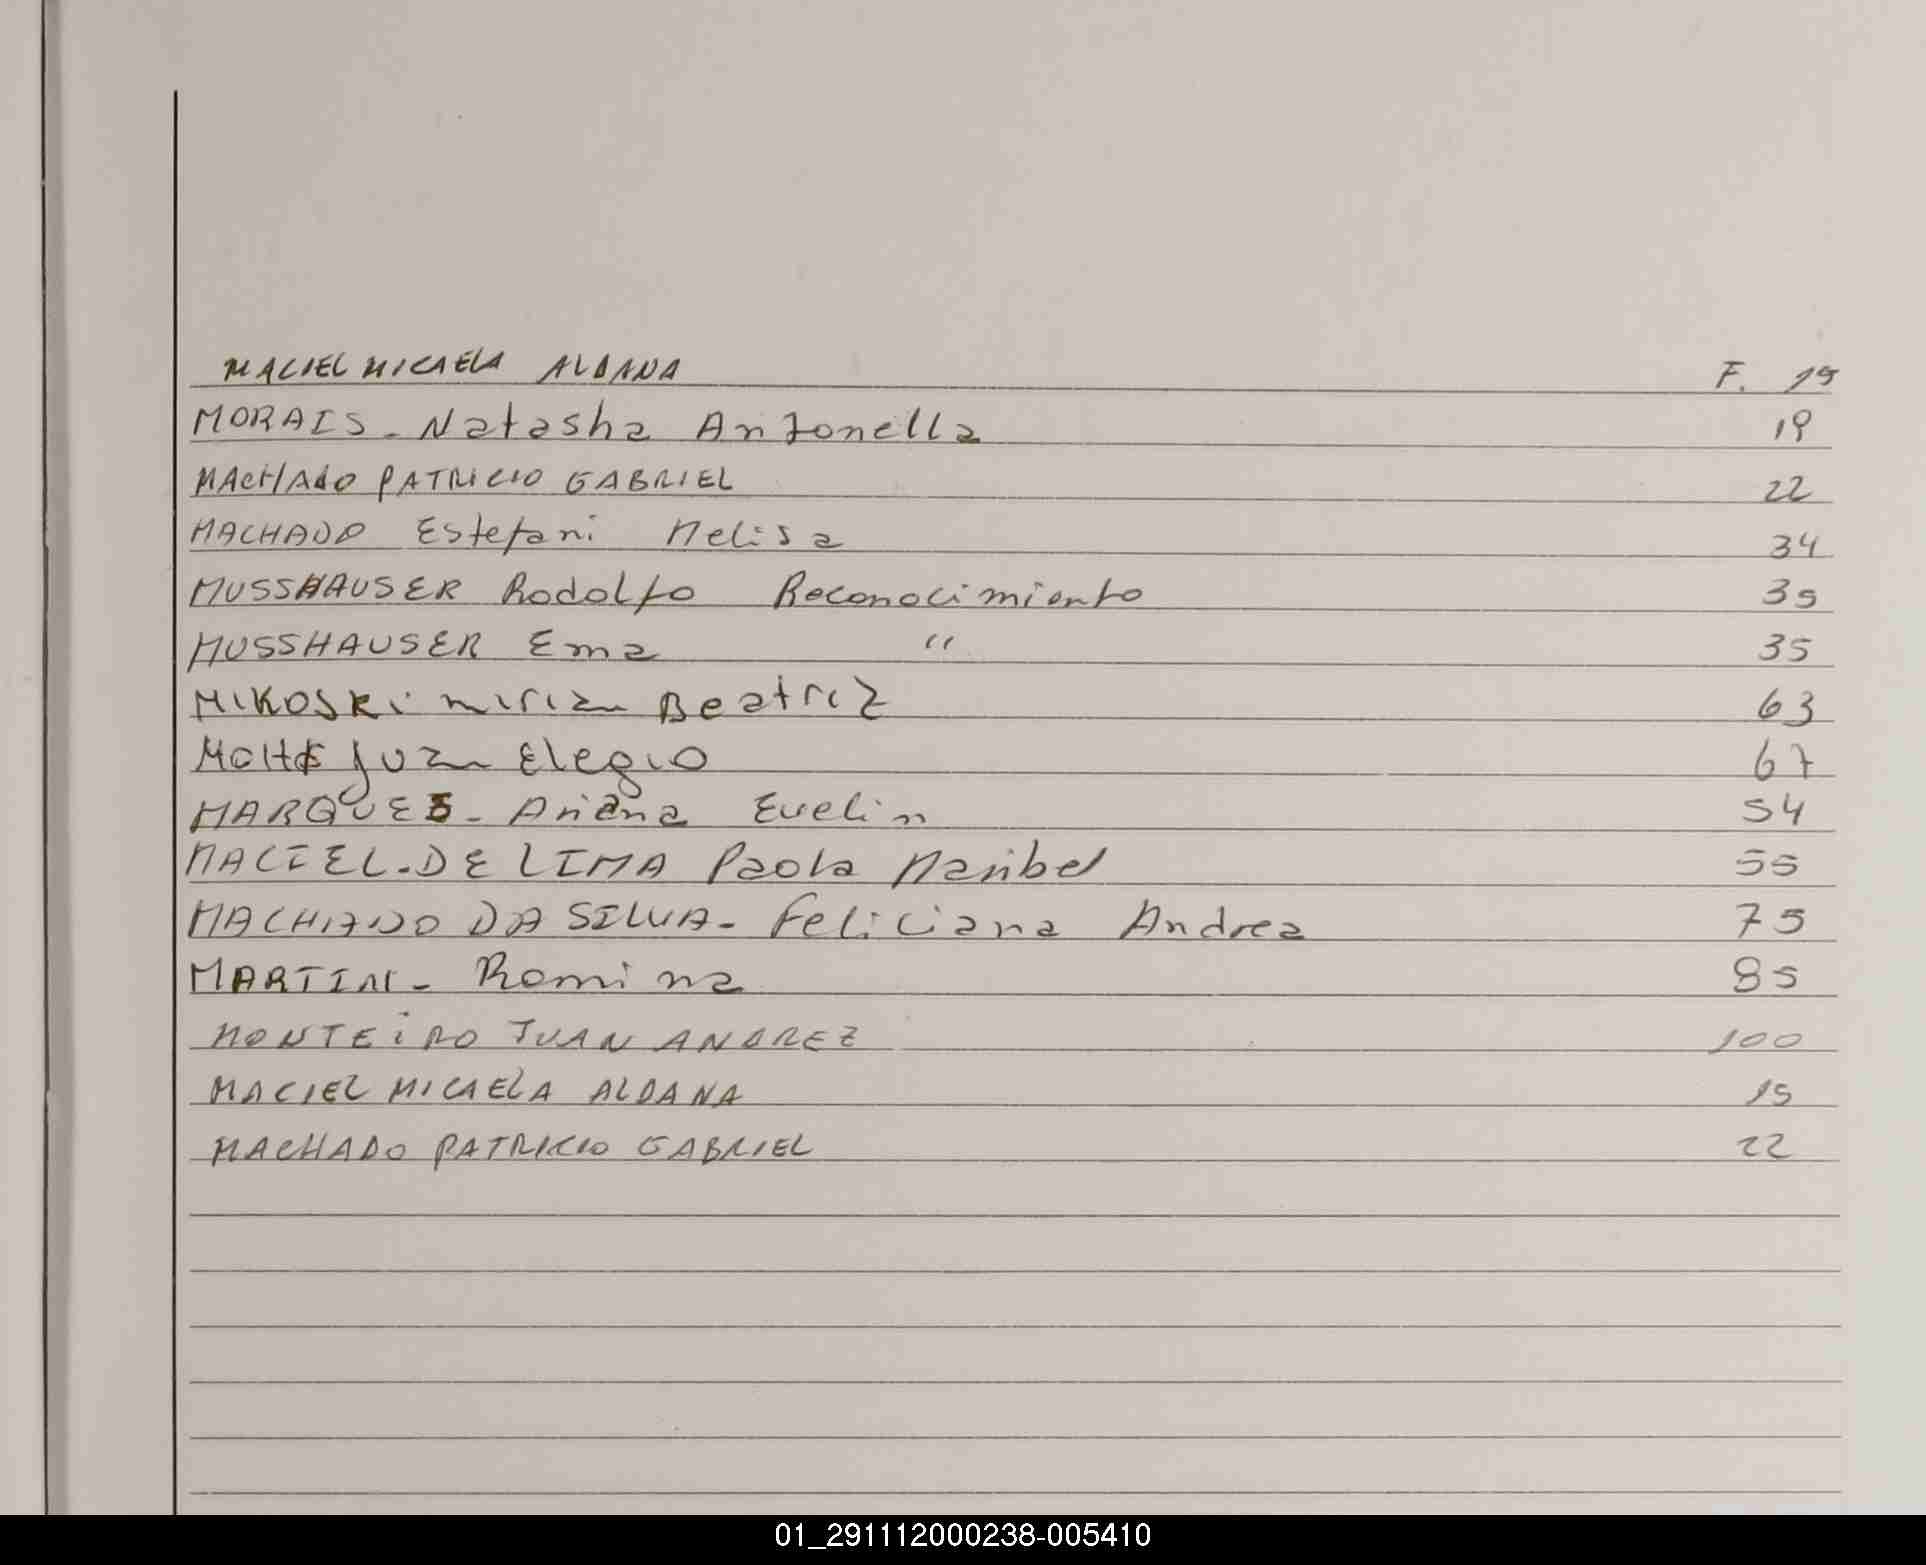 MACIEL MICAELA ALDANA F. 15
MORAIS - Natasha Antonella 19
MACHAdO PATRICIO GABRIEL 22
MACHADO Estefani Melisa 34
MUSSHAUSER Rodolfo Reconocimiento 35
MUSSHAUSER Ema " 35
MIKOSKi Mirian Beatriz 63
Juan Elegio 67
MARQUES - Ariana Evelin 54
MACIEL - DE LIMA Paola Maribel 55
MACHADO DA SILVA - Feliciana Andrea 75
MARTIN - Romina 85
MONTEiRO JUAN ANDREZ 100
MACIEL MICAELA ALDANA 15
MACHADO PATRICIO GABRIEL 22
01_291112000238-005410